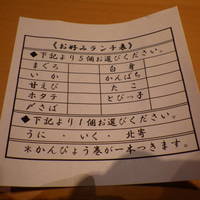 《お好みランチ巻》
◆下記より5個お選びください。
まぐろ 白身
いか かんぱち
甘えび たこ
ホタテ とびっ子
〆さば
◆下記より1個お選びください。
うに・いく・北寄
木かんぴょう巻が一本つきます。